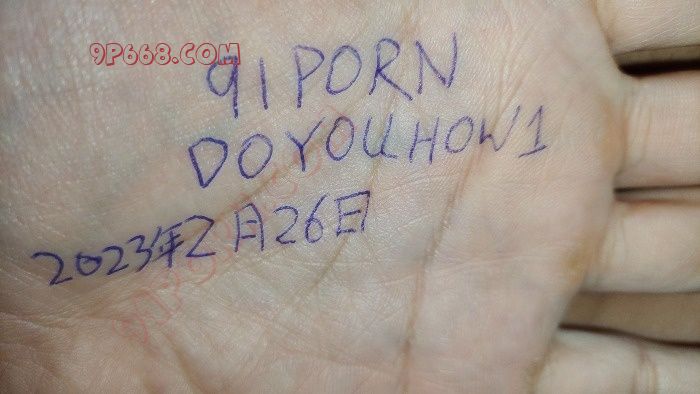 9P668.COM
91PORN
DOYOUHOW1
2023年2月26日